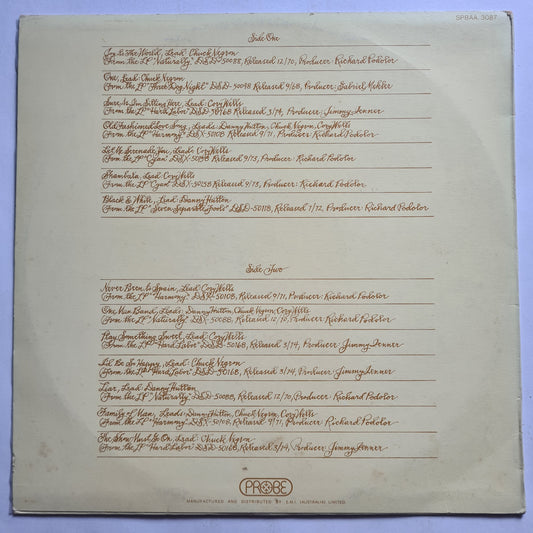 SPBAA. 3087
Side One
Joy To The World, Lead: Chuck Negron
(From the LP "Naturally" DSD-50088, Released 12/70, Producer Richard Podolor
One, Lead: Chuck Negron
(From the LP "Three Dog Night" DSD-50048 Released 9/68, Producer: Gabriel Mekler
Sure As I'm Sitting Here, Lead: Cory Wells
(From the LP "Hard Labor" DSD-50168 Released 3/74, Producer: Jimmy Ienner
Old Fashioned Love Song, Leads: Danny Hutton, Chuck Negron, Cory Wells
(From the LP "Harmony" DSX-50108 Released 9/71, Producer: Richard Podolor
Let Me Serenade You, Lead: Cory Wells
(From the LP "Cyan" DSX-50158 Released 9/73, Producer: Richard Podolor
Shambala, Lead: Cory Wells
(From the LP "Cyan" DSX-50158 Released 9/73, Producer: Richard Podolor
Black & White, Lead: Danny Hutton
(From the LP "Seven Separate Fools" DSD-50118, Released 7/72, Producer: Richard Podolor
Side Two
Never Been to Spain, Lead: Cory Wells
(From the LP "Harmony" DSX-50108, Released 9/71, Producer: Richard Podolor
One Man Band, Leads: Danny Hutton, Chuck Negron, Cory Wells
(From the LP "Naturally" DSX-50088, Released 12/70, Producer: Richard Podolor
Play Something Sweet, Lead: Cory Wells
(From the LP "Hard Labor" DSD-50168, Released 3/74, Producer: Jimmy Ienner
I'd Be So Happy, Lead: Chuck Negron
(From the LP "Hard Labor" DSD-50168, Released 3/74, Producer: Jimmy Ienner
Liar, Lead: Danny Hutton
(From the LP "Naturally" DSX-50088, Released 12/70, Producer: Richard Podolor
Family of Man, Leads: Danny Hutton, Chuck Negron, Cory Wells
(From the LP "Harmony" DSX-50108, Released 9/71, Producer: Richard Podolor
The Show Must Go On, Lead: Chuck Negron
(From the LP "Hard Labor" DSD-50168, Released 3/74, Producer: Jimmy Ienner
PROBE
MANUFACTURED AND DISTRIBUTED BY E.M.I. (AUSTRALIA) LIMITED.